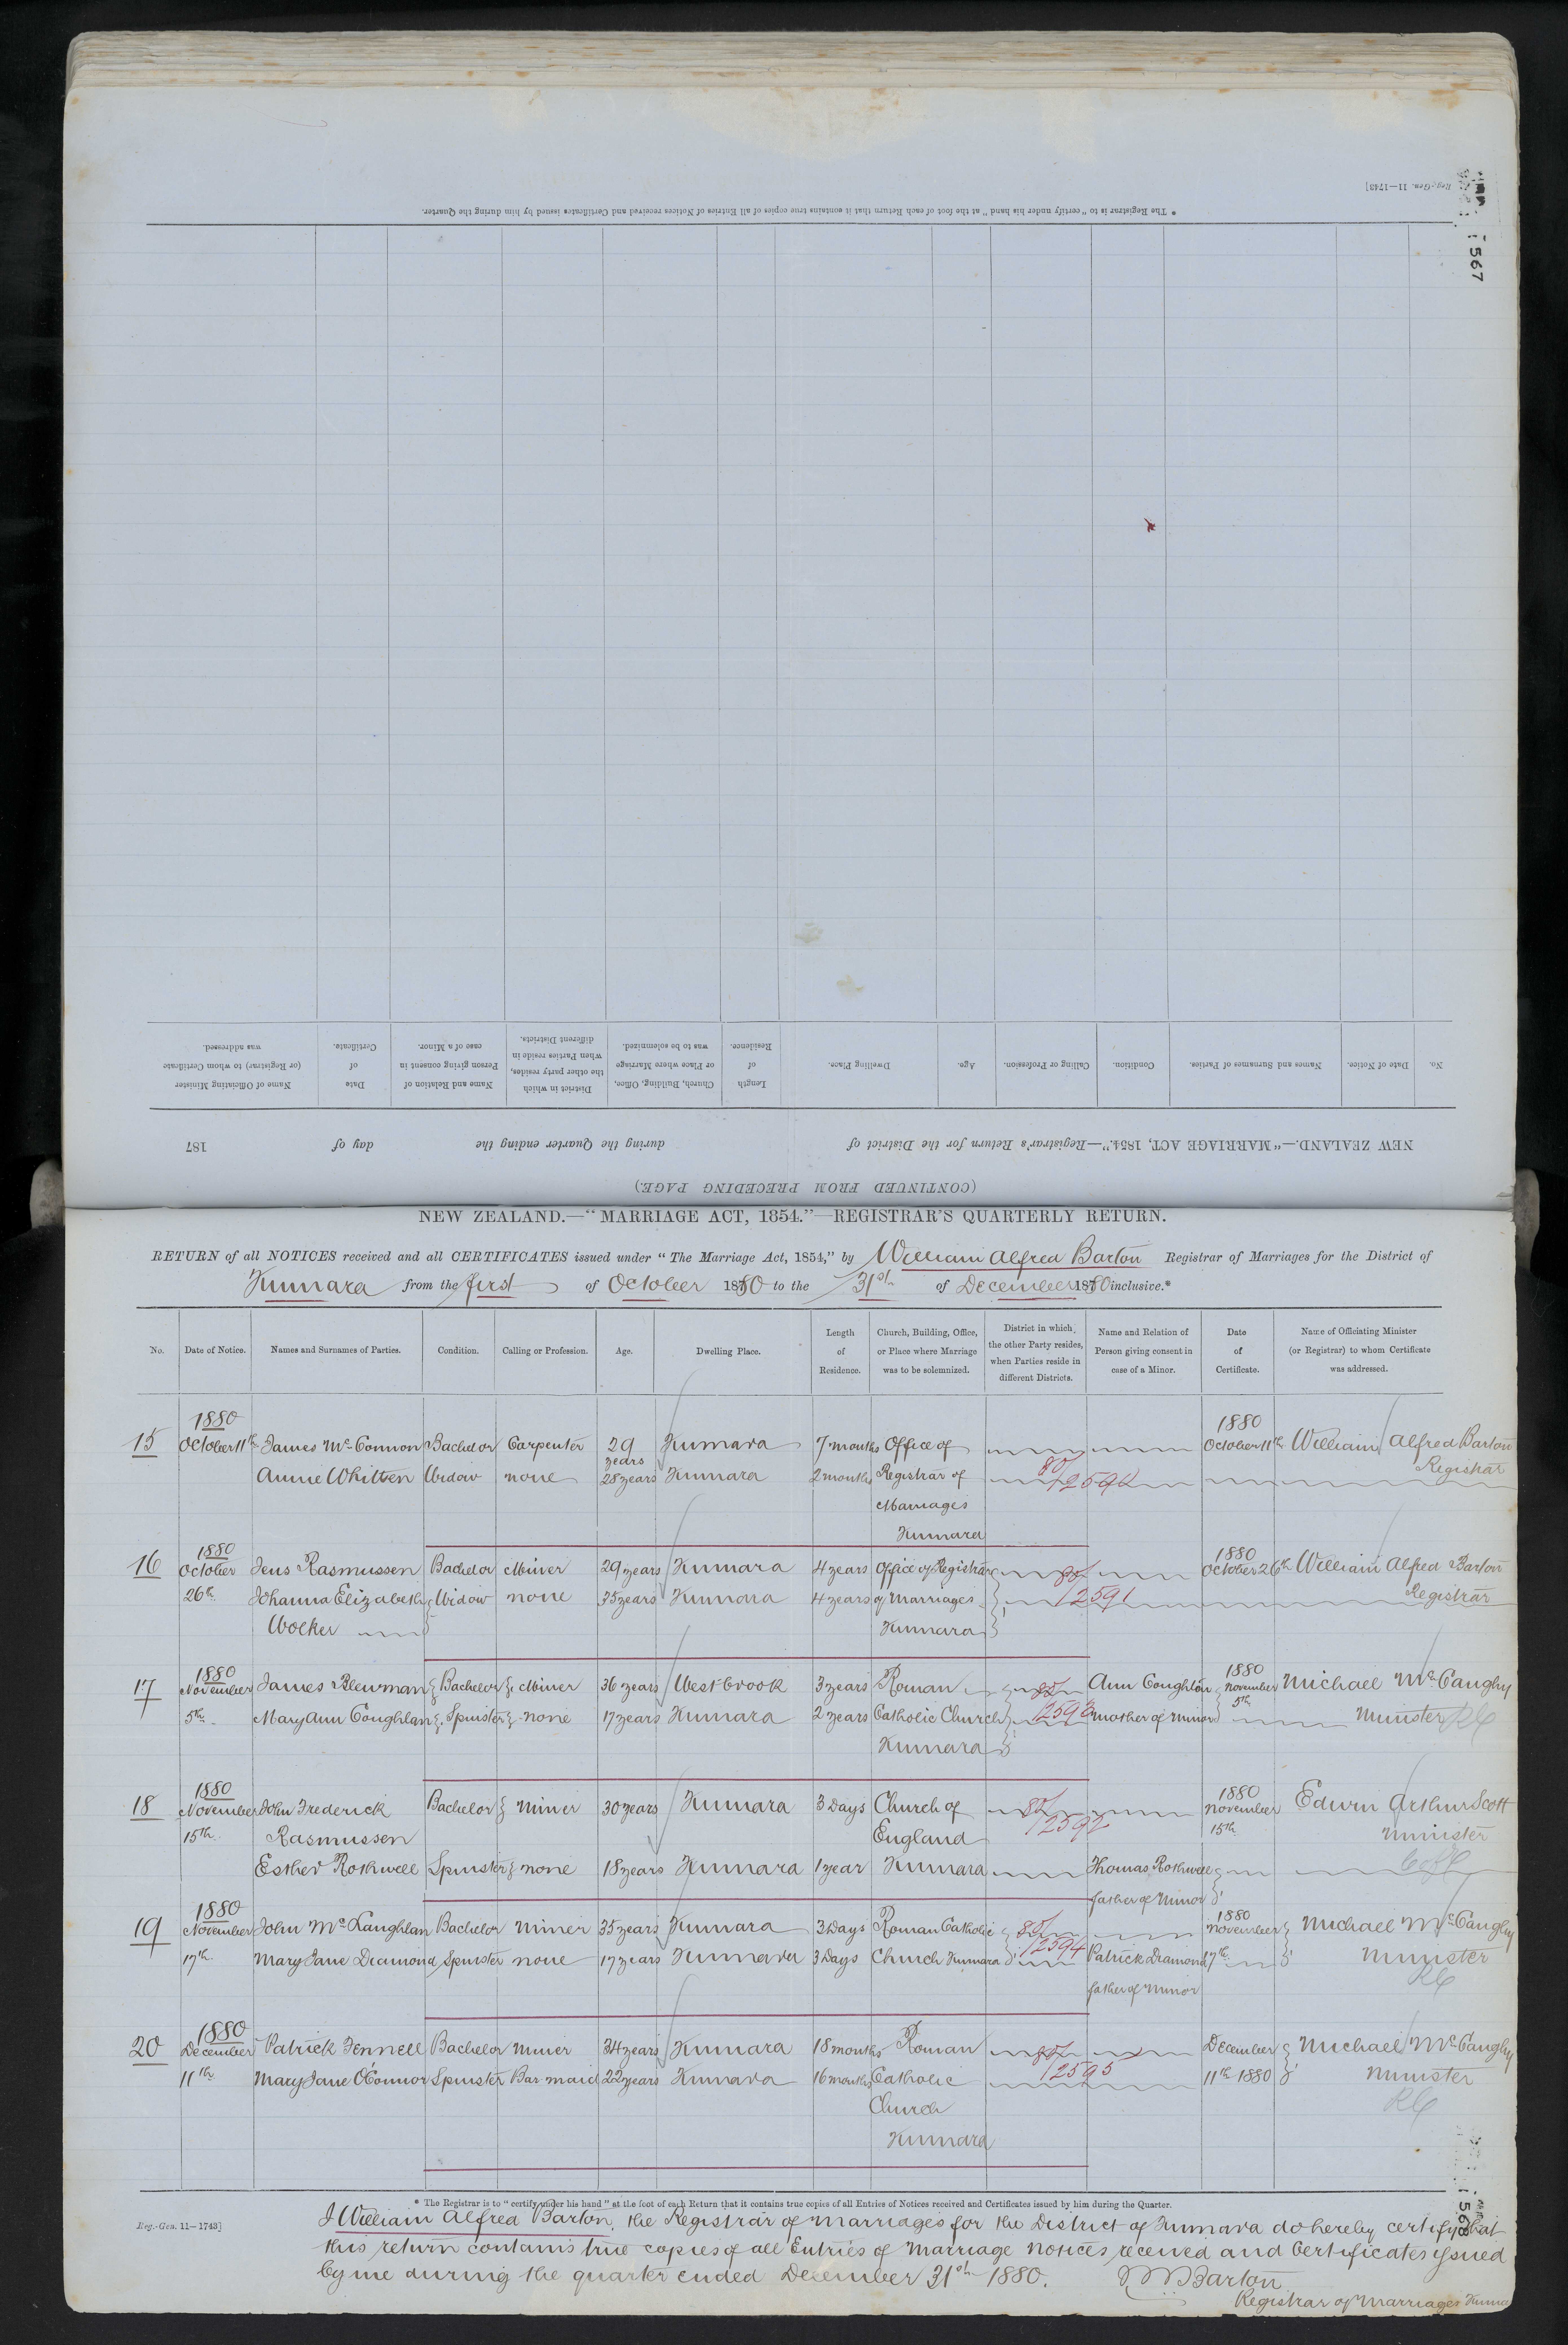 Reg.-Gen. 11—1743]
* The Registrar is to "certify under his hand" at the foot of each Return that it contains true copies of all Entries of Notices received and Certificates issued by him during the Quarter.
567
No. Date of Notice. Names and Surnames of Parties. Condition. Calling or Profession. Age. Dwelling Place. Length of Residence. Church, Building, Office, or Place where Marriage was to be solemnized. District in which the other party resides, when Parties reside in different Districts. Name and Relation of Person giving consent in case of a Minor. Date of Certificate. Name of Officiating Minister (or Registrar) to whom Certificate was addressed.
NEW ZEALAND.—"MARRIAGE ACT, 1854."—Registrar's Return for the District of during the Quarter ending the day of 187
(CONTINUED FROM PRECEDING PAGE.)
NEW ZEALAND.—"MARRIAGE ACT, 1854."—REGISTRAR'S QUARTERLY RETURN.
RETURN of all NOTICES received and all CERTIFICATES issued under "The Marriage Act, 1854," by William Alfred Barton Registrar of Marriages for the District of
Kumara from the first of October 1880 to the 31st of December 1880 inclusive.*
No. Date of Notice. Names and Surnames of Parties. Condition. Calling or Profession. Age. Dwelling Place. Length of Residence. Church, Building, Office, or Place where Marriage was to be solemnized. District in which the other Party resides, when Parties reside in different Districts. Name and Relation of Person giving consent in case of a Minor. Date of Certificate. Name of Officiating Minister (or Registrar) to whom Certificate was addressed.
1880 1880
15 October 11th James McConnon Bachelor Carpenter 29 years Kumara 7 months Office of October 11th William Alfred Barton
Annie Whitten Widow none 28 years Kumara 2 months Registrar of 80/2590 Registrar
Marriages
Kumara
1880 1880
16 October Jens Rasmussen Bachelor Miner 29 years Kumara 4 years Office of Registrar 80/ October 26th William Alfred Barton
26th Johanna Elizabeth Widow none 35 years Kumara 4 years of Marriages 2591 Registrar
Wolker Kumara
1880 1880
17 November James Plewman Bachelor Miner 36 years Westbrook 3 years Roman 80/ Ann Coughlan November Michael McCaughy
5th Mary Ann Coughlan Spinster none 17 years Kumara 2 years Catholic Church 2593 mother of Minor 5th Minister RC
Kumara
1880 1880
18 November John Frederick Bachelor Miner 30 years Kumara 3 Days Church of 80/ November Edwin Arthur Scott
15th Rasmussen England 2592 15th Minister
Esther Rothwell Spinster none 18 years Kumara 1 year Kumara Thomas Rothwell CofE
father of Minor
1880 1880
19 November John McLaughlan Bachelor Miner 35 years Kumara 3 Days Roman Catholic 80/ November Michael McCaughy
17th Mary Jane Diamond Spinster none 17 years Kumara 3 Days Church Kumara 2594 Patrick Diamond 17th Minister
father of Minor RC
1880
20 December Patrick Fennell Bachelor Miner 34 years Kumara 18 months Roman 80/ December Michael McCaughy
11th Mary Jane O'Connor Spinster Bar maid 22 years Kumara 16 months Catholic 2595 11th 1880 Minister
Church RC
Kumara
* The Registrar is to "certify under his hand" at the foot of each Return that it contains true copies of all Entries of Notices received and Certificates issued by him during the Quarter.
Reg.-Gen. 11—1743]
568
I William Alfred Barton, the Registrar of Marriages for the District of Kumara do hereby certify that
this return contains true copies of all Entries of Marriage Notices received and Certificates issued
by me during the quarter ended December 31st 1880. W A Barton
Registrar of Marriages Kumara